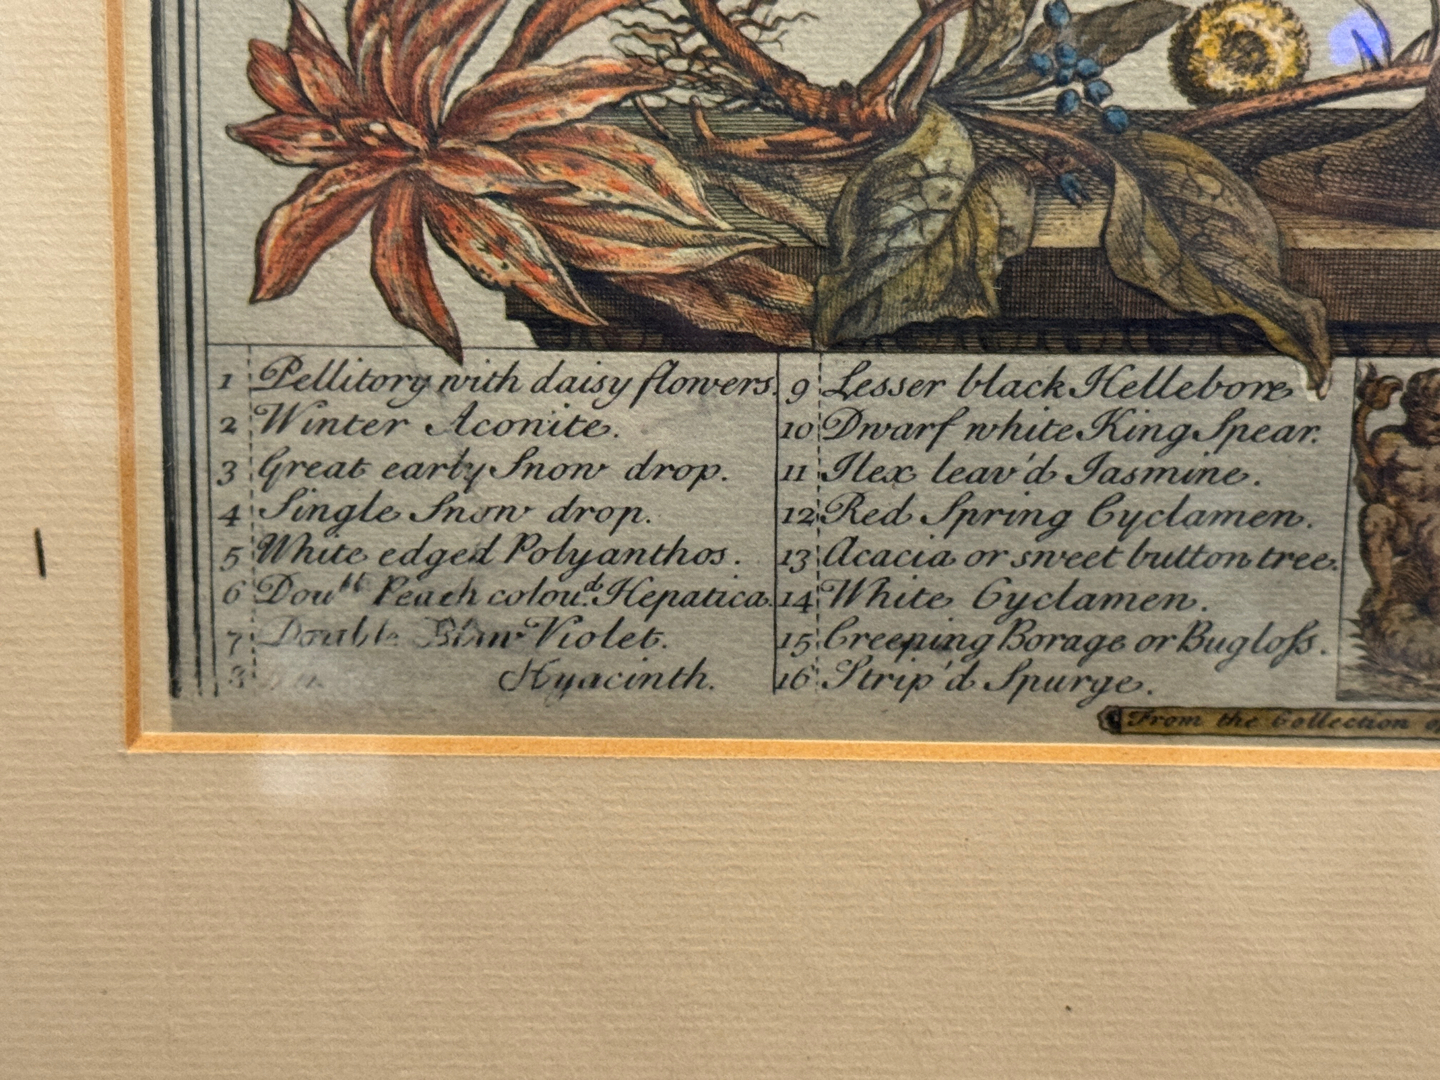 1 Pellitory with daisy flowers.
2 Winter Aconite.
3 Great early Snow drop.
4 Single Snow drop.
5 White edged Polyanthos.
6 Dou.bl Peach colou.d Hepatica.
7 Double Blew Violet.
8 Hyacinth.
9 Lesser black Hellebore
10 Dwarf white King Spear.
11 Ilex leav'd Iasmine.
12 Red Spring Cyclamen.
13 Acacia or sweet button tree.
14 White Cyclamen.
15 Creeping Borage or Bugloſs.
16 Strip'd Spurge.
From the Collection